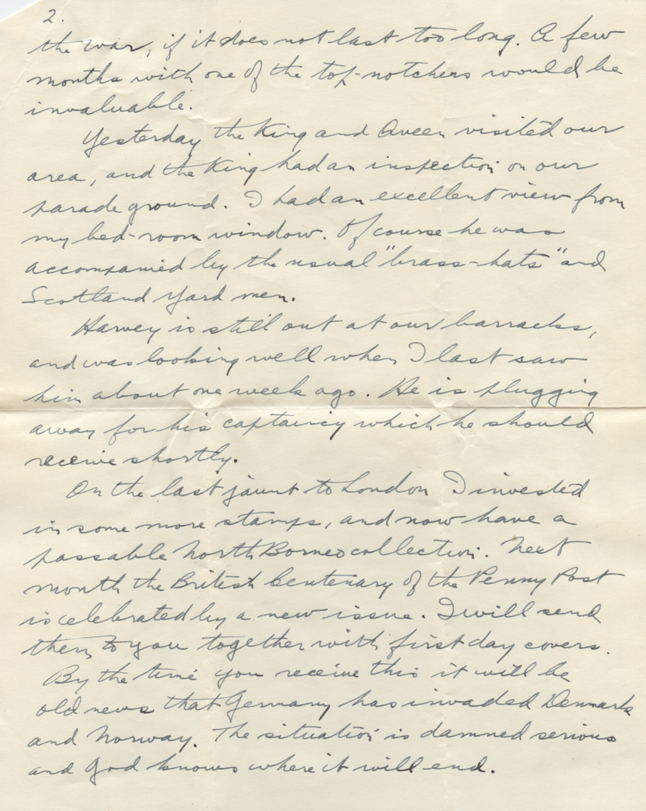 2.
the war, if it does not last too long. A few
months with one of the top-notchers would be
invaluable.
Yesterday the King and Queen visited our
area, and the King had an inspection on our
parade ground. I had an excellent view from
my bed-room window. Of course he was
accompanied by the usual "brass-hats" and
Scotland Yard men.
Harvey is still out at our barracks,
and was looking well when I last saw
him about one week ago. He is plugging
away for his captaincy which he should
receive shortly.
On the last jaunt to London I invested
in some more stamps, and now have a
passable North Borneo collection. Next
month the British Centenary of the Penny Post
is celebrated by a new issue. I will send
them to you together with first day covers.
By the time you receive this it will be
old news that Germany has invaded Denmark
and Norway. The situation is damned serious
and God knows where it will end.